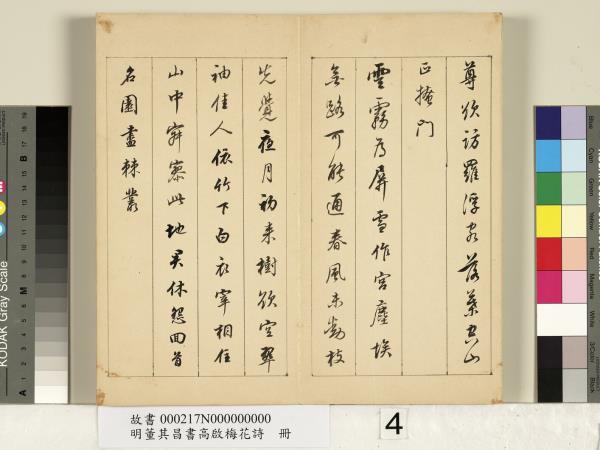 尊欲訪羅浮客落葉空山
正掩門
雲霧為屏雪作宮塵埃
無路可能通春風未動枝
先覺夜月初來樹欲空翠
袖佳人依竹下白衣宰相住
山中寂寥此地君休怨回首
名園盡棘叢
故書 000217N000000000
明董其昌書高啟梅花詩 冊
4
KODAK Gray Scale
A
M
B
Blue
Cyan
Green
Yellow
Red
Magenta
White
3/Color
Black